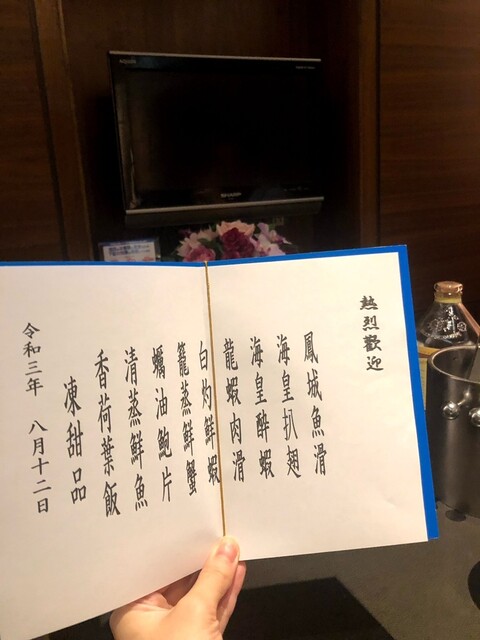 熱烈歡迎
鳳城魚滑
海皇扒翅
海皇酔蝦
龍蝦肉滑
白灼鮮蝦
籠蒸鮮蟹
蠣油鮑片
清蒸鮮魚
香荷葉飯
凍甜品
令和三年 八月十二日
AQUOS
SHARP